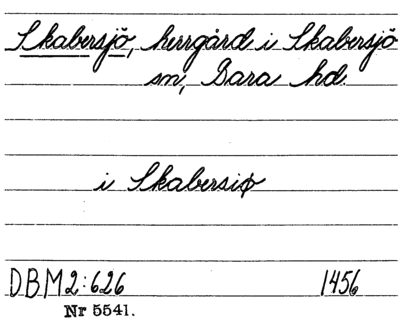 Skabersjö, herrgård i Skabersjö
sn, Bara hd.
i Skabersiø
DBM2:626 1456
Nr 5541.